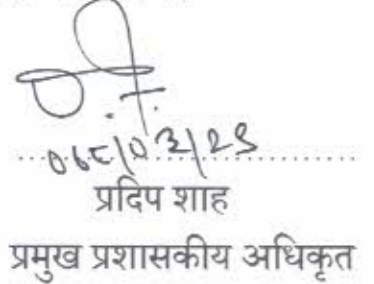 ०६८/०३/२९
प्रदिप शाह
प्रमुख प्रशासकीय अधिकृत